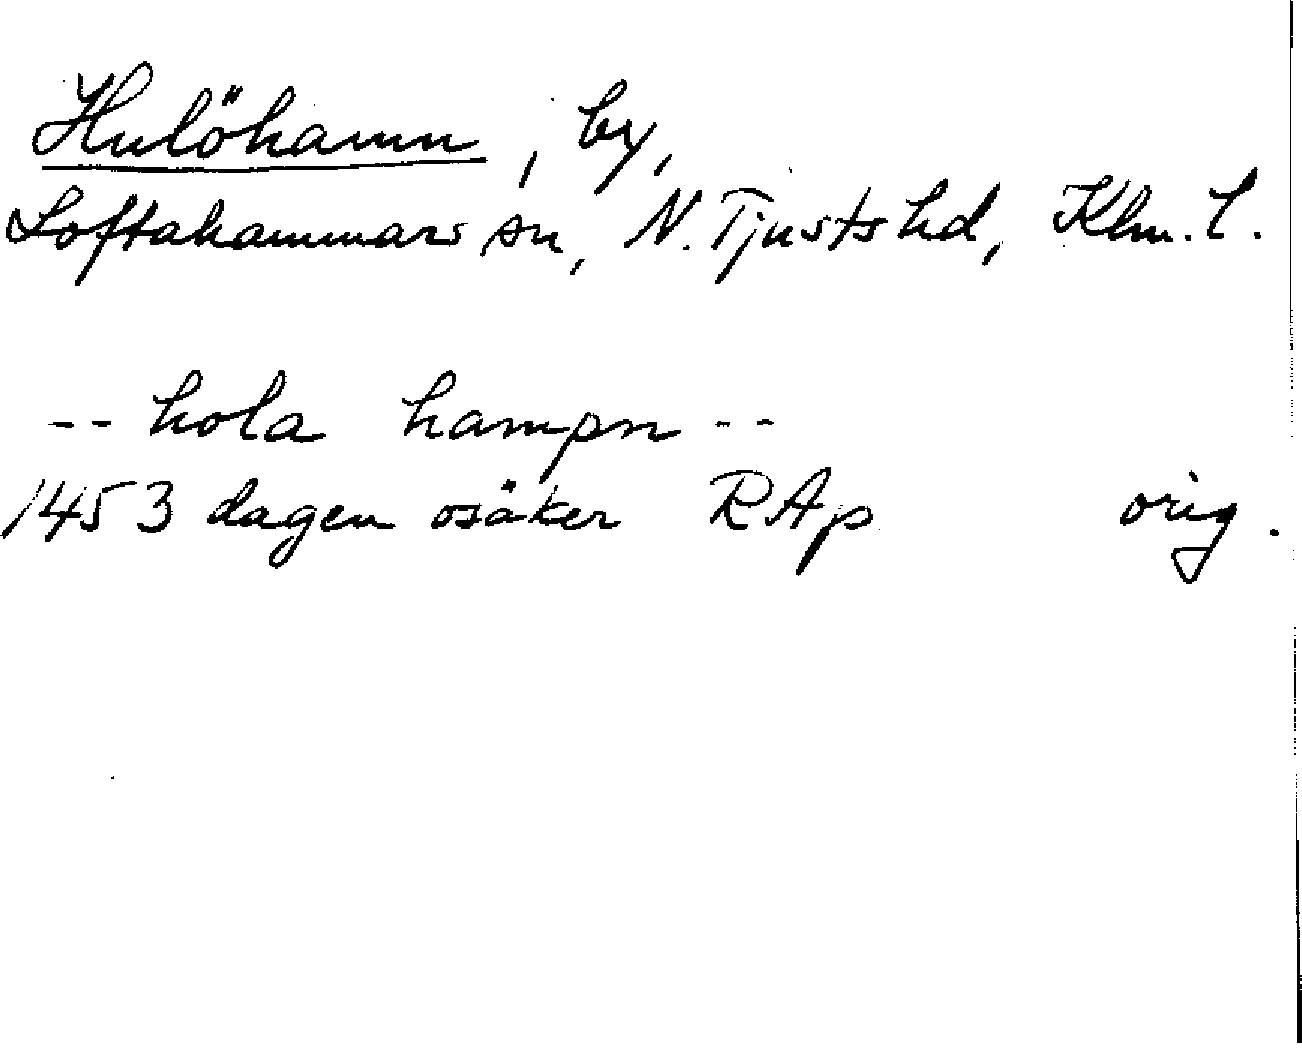 Hulöhamn, by,
Loftahammars sn, N. Tjusts hd, Klm. l.
-- hola hampn --
1453 dagen osäker RAp orig.